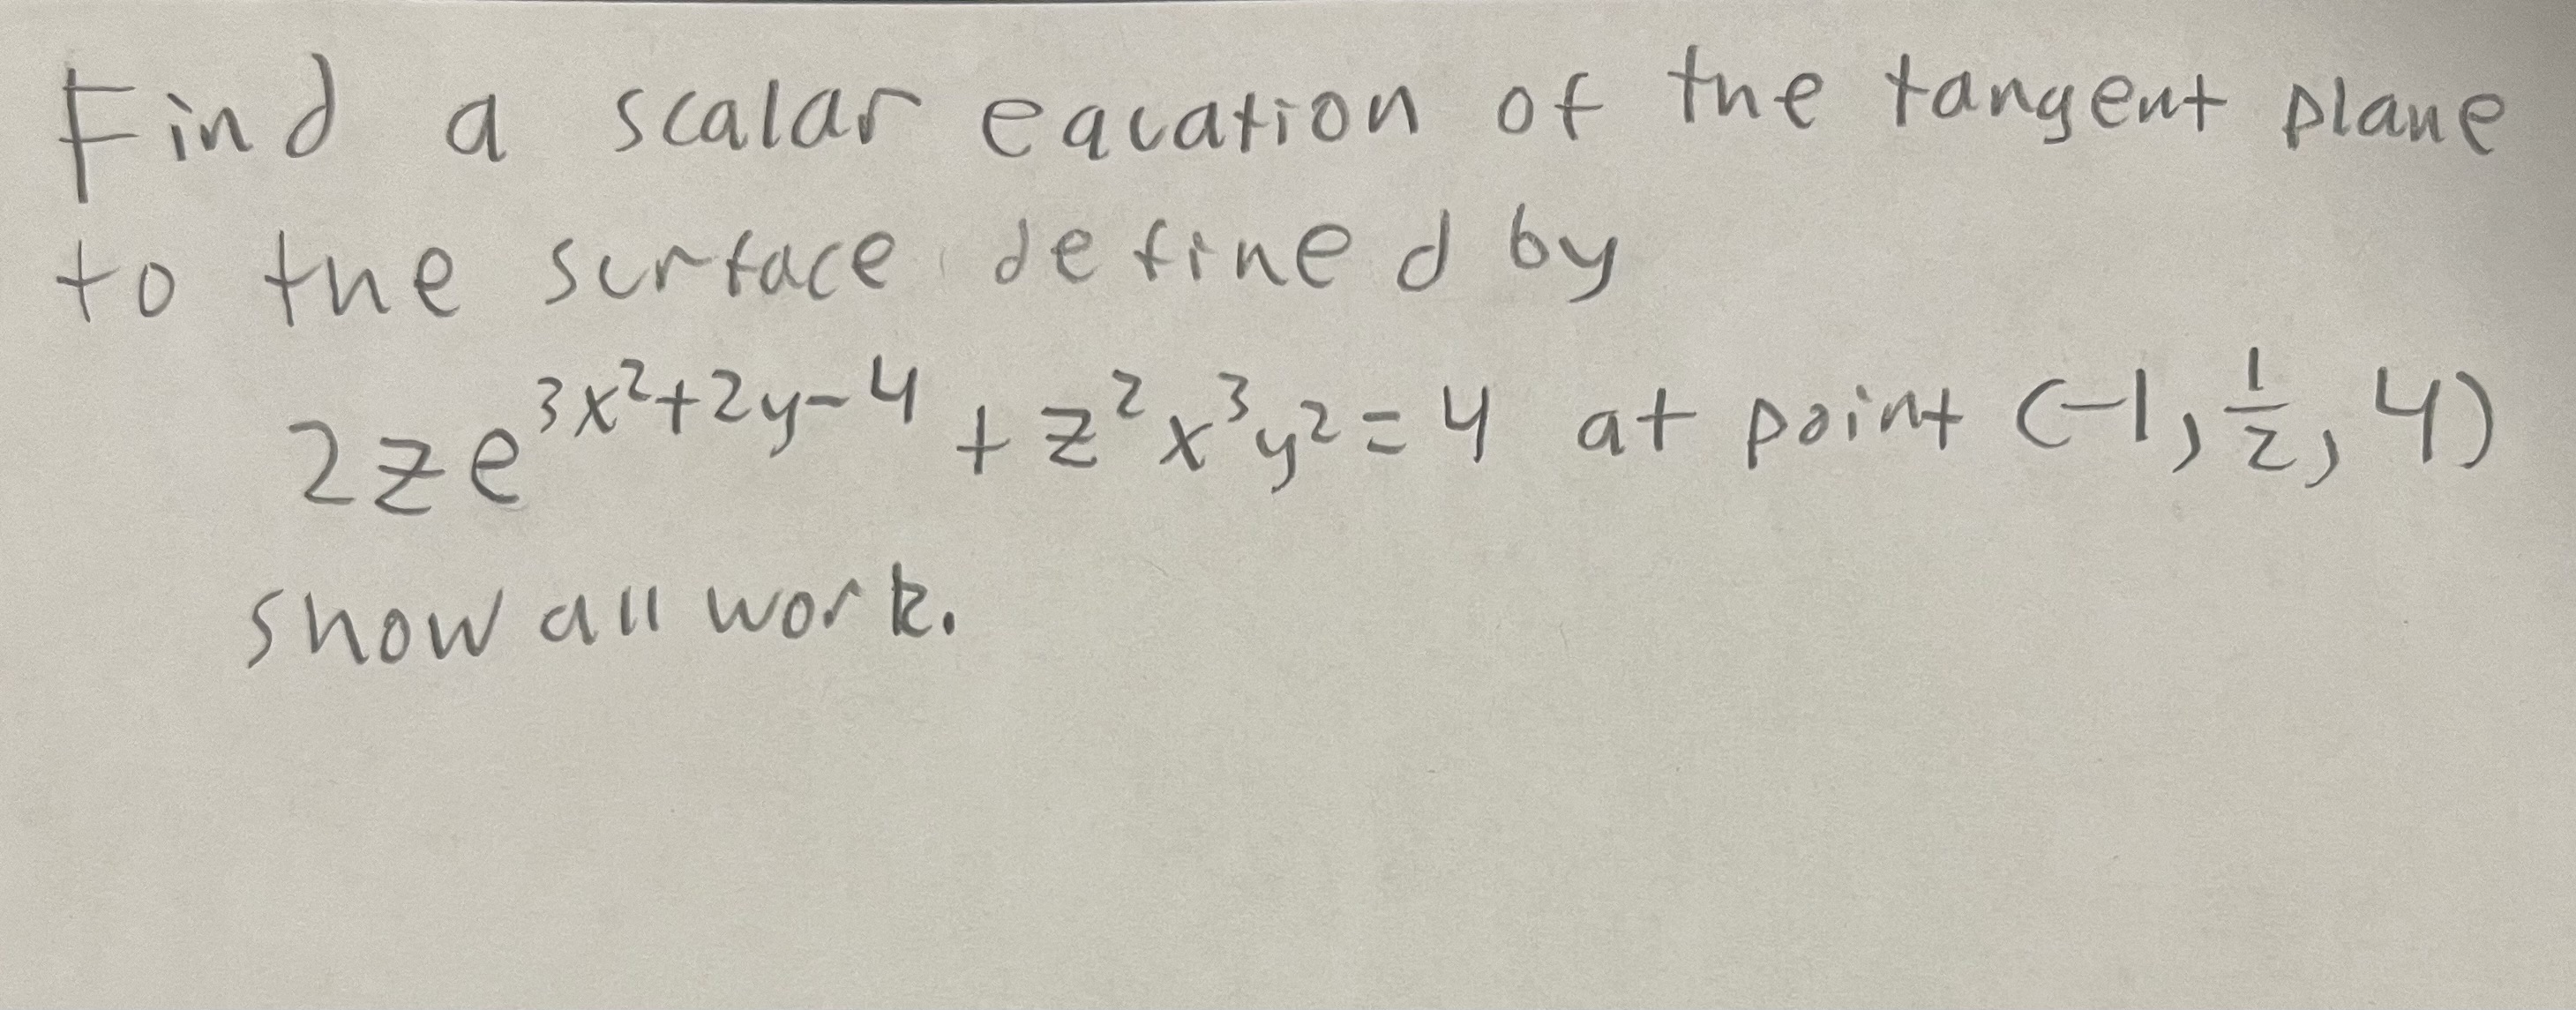 Find a scalar equation of the tangent plane
to the surface defined by
2ze^{3x^2+2y-4} + z^2x^3y^2 = 4 at point (-1, 1/2, 4)
show all work.